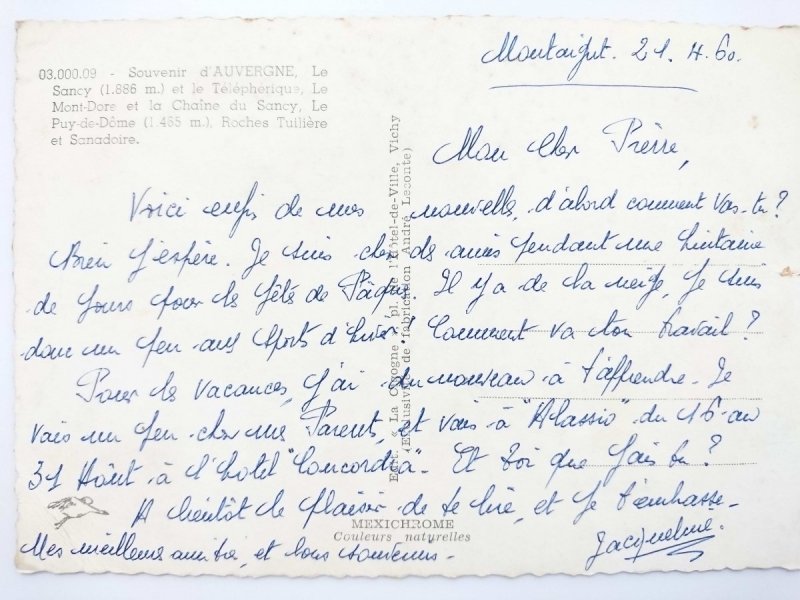 Montaigut. 21.4.60.
03.000.09 - Souvenir d'AUVERGNE, Le
Sancy (1.886 m.) et le Téléphérique, Le
Mont-Dore et la Chaîne du Sancy, Le
Puy-de-Dôme (1.465 m.), Roches Tuilière
et Sanadoire.
Mon cher Pierre,
Voici enfin de mes nouvelles, d'abord comment vas-tu?
Bien j'espère. Je suis chez des amis pendant une huitaine
de jours pour les fêtes de Pâques. Il y a de la neige, je suis
donc un peu aux sports d'hiver! Comment va ton travail?
Pour les vacances, j'ai du nouveau à t'apprendre. Je
vais un peu chez mes Parents, et vais à "Alassio" du 16 au
31 Août à l'hôtel "Concordia". Et toi que fais tu?
A bientôt le plaisir de te lire, et je t'embrasse.
Jacqueline.
Mes meilleures amitiés, et bons souvenirs.
Edit. « La Cigogne », pl. de l'Hôtel-de-Ville, Vichy
(Exclusivité de fabrication André Leconte)
MEXICHROME
Couleurs naturelles